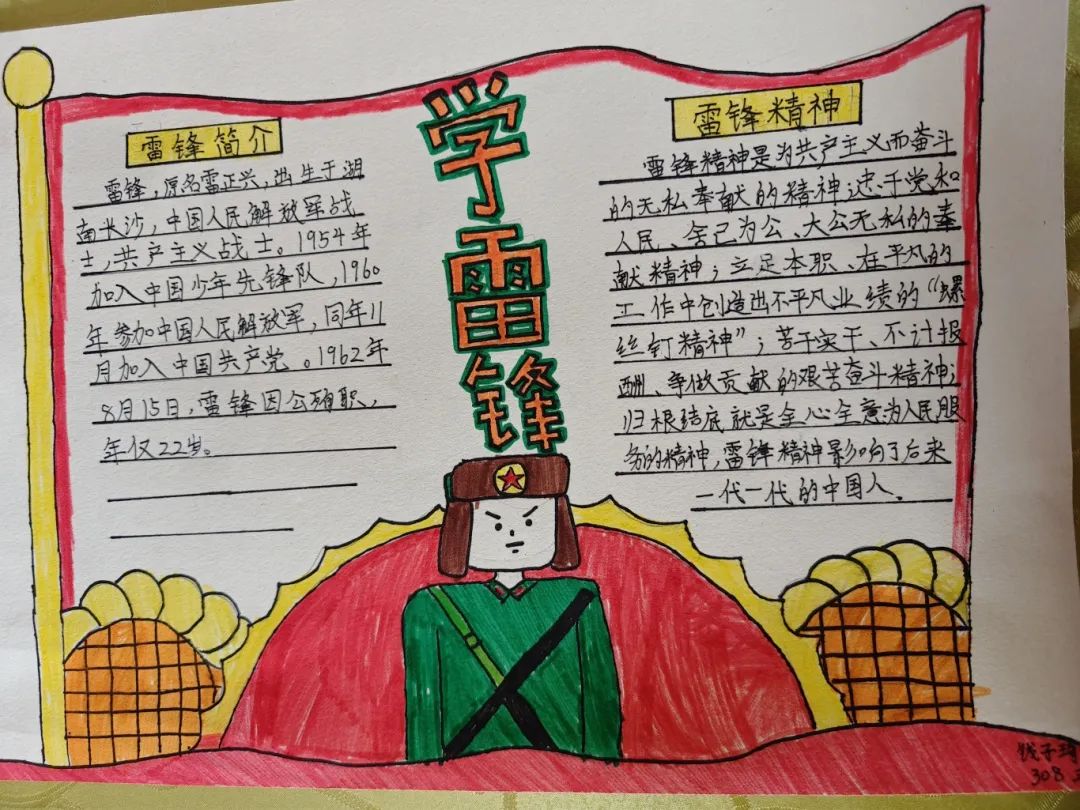 学雷锋
雷锋简介
雷锋,原名雷正兴,出生于湖
南长沙,中国人民解放军战
士,共产主义战士。1954年
加入中国少年先锋队,1960
年参加中国人民解放军,同年11
月加入中国共产党。1962年
8月15日,雷锋因公殉职,
年仅22岁。
雷锋精神
雷锋精神是为共产主义而奋斗
的无私奉献的精神;忠于党和
人民、舍己为公、大公无私的奉
献精神;立足本职、在平凡的
工作中创造出不平凡业绩的“螺
丝钉精神”;苦干实干、不计报
酬、争做贡献的艰苦奋斗精神;
归根结底就是全心全意为人民服
务的精神,雷锋精神影响了后来
一代一代的中国人、
钱子
308